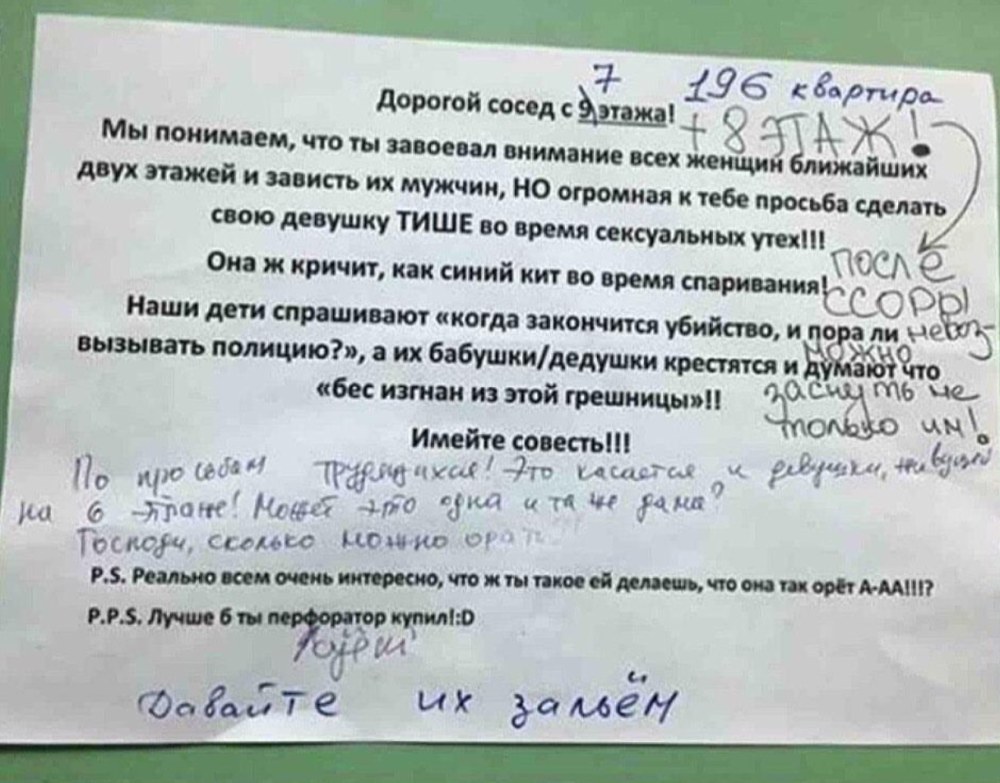 7 196 квартира
Дорогой сосед с 9 этажа! + 8 ЭТАЖ!
Мы понимаем, что ты завоевал внимание всех женщин ближайших
двух этажей и зависть их мужчин, НО огромная к тебе просьба сделать
свою девушку ТИШЕ во время сексуальных утех!!!
Она ж кричит, как синий кит во время спаривания!
Наши дети спрашивают «когда закончится убийство, и пора ли
вызывать полицию?», а их бабушки/дедушки крестятся и думают что
«бес изгнан из этой грешницы»!!
Имейте совесть!!!
ПОСЛЕ
ССОРЫ
невоз-
можно
заснуть не
только им!
По просьбам трудящихся! Это касается и девушки, живущей
на 6 этаже! Может это одна и та же дама?
Господи, сколько можно орать
P.S. Реально всем очень интересно, что ж ты такое ей делаешь, что она так орёт А-АА!!!?
P.P.S. Лучше б ты перфоратор купил!:D
Давайте их зальём